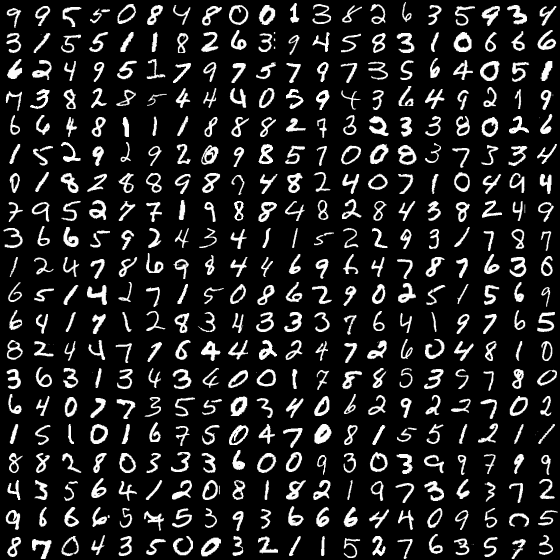 9 9 5 5 0 8 4 8 0 0 1 3 8 2 6 3 5 9 3 4
3 1 5 5 1 1 8 2 6 3 9 4 5 8 3 1 0 6 6 6
6 2 4 9 5 1 7 9 7 5 7 9 7 3 5 6 4 0 5 1
7 3 8 2 8 5 4 4 4 0 5 9 4 3 6 4 9 2 1 9
6 6 4 8 1 1 1 8 8 8 2 7 3 2 3 3 8 0 2 6
1 5 2 9 2 9 2 0 9 8 5 7 0 0 8 3 7 3 3 4
0 1 8 2 8 8 9 8 7 4 8 2 4 0 7 1 0 4 9 4
7 9 5 2 7 7 1 9 8 8 4 8 2 8 4 3 8 2 4 9
3 6 6 5 9 2 4 3 4 1 1 5 2 2 9 3 1 7 8 7
1 2 4 7 8 6 9 8 4 4 6 9 6 4 7 8 7 6 3 6
6 5 1 4 2 7 1 5 0 8 6 2 9 0 2 5 1 5 6 9
6 4 1 7 1 2 8 3 4 3 3 3 7 6 4 1 9 7 6 5
8 2 4 4 7 7 6 4 4 2 2 4 7 2 6 0 4 8 1 0
3 6 3 1 3 4 3 6 0 0 1 7 8 8 5 3 9 7 8 0
6 4 0 7 7 3 5 5 0 3 4 0 6 2 9 2 2 7 0 2
1 5 1 0 1 6 7 5 0 4 7 0 8 1 5 5 1 2 1 1
8 8 2 8 0 3 3 3 6 0 0 9 3 0 3 9 9 7 9 9
4 3 5 6 4 1 2 0 8 1 8 2 1 9 7 3 6 3 7 2
9 6 6 6 5 5 3 9 3 6 6 6 4 4 0 9 5 5
8 7 0 4 3 5 0 0 3 2 1 1 5 2 7 6 3 5 7 3